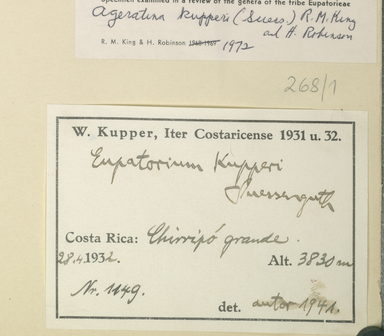 Specimen examined in a review of the genera of the tribe Eupatorieae
Ageratina kupperi (Suess.) R. M. King
and H. Robinson
R. M. King & H. Robinson 1968-1969 1972
268/1
W. Kupper, Iter Costaricense 1931 u. 32.
Eupatorium Kupperi
Suessenguth
Costa Rica: Chirripó grande.
28.4.1932. Alt. 3830 m
Nr. 1149.
det. autor 1941.